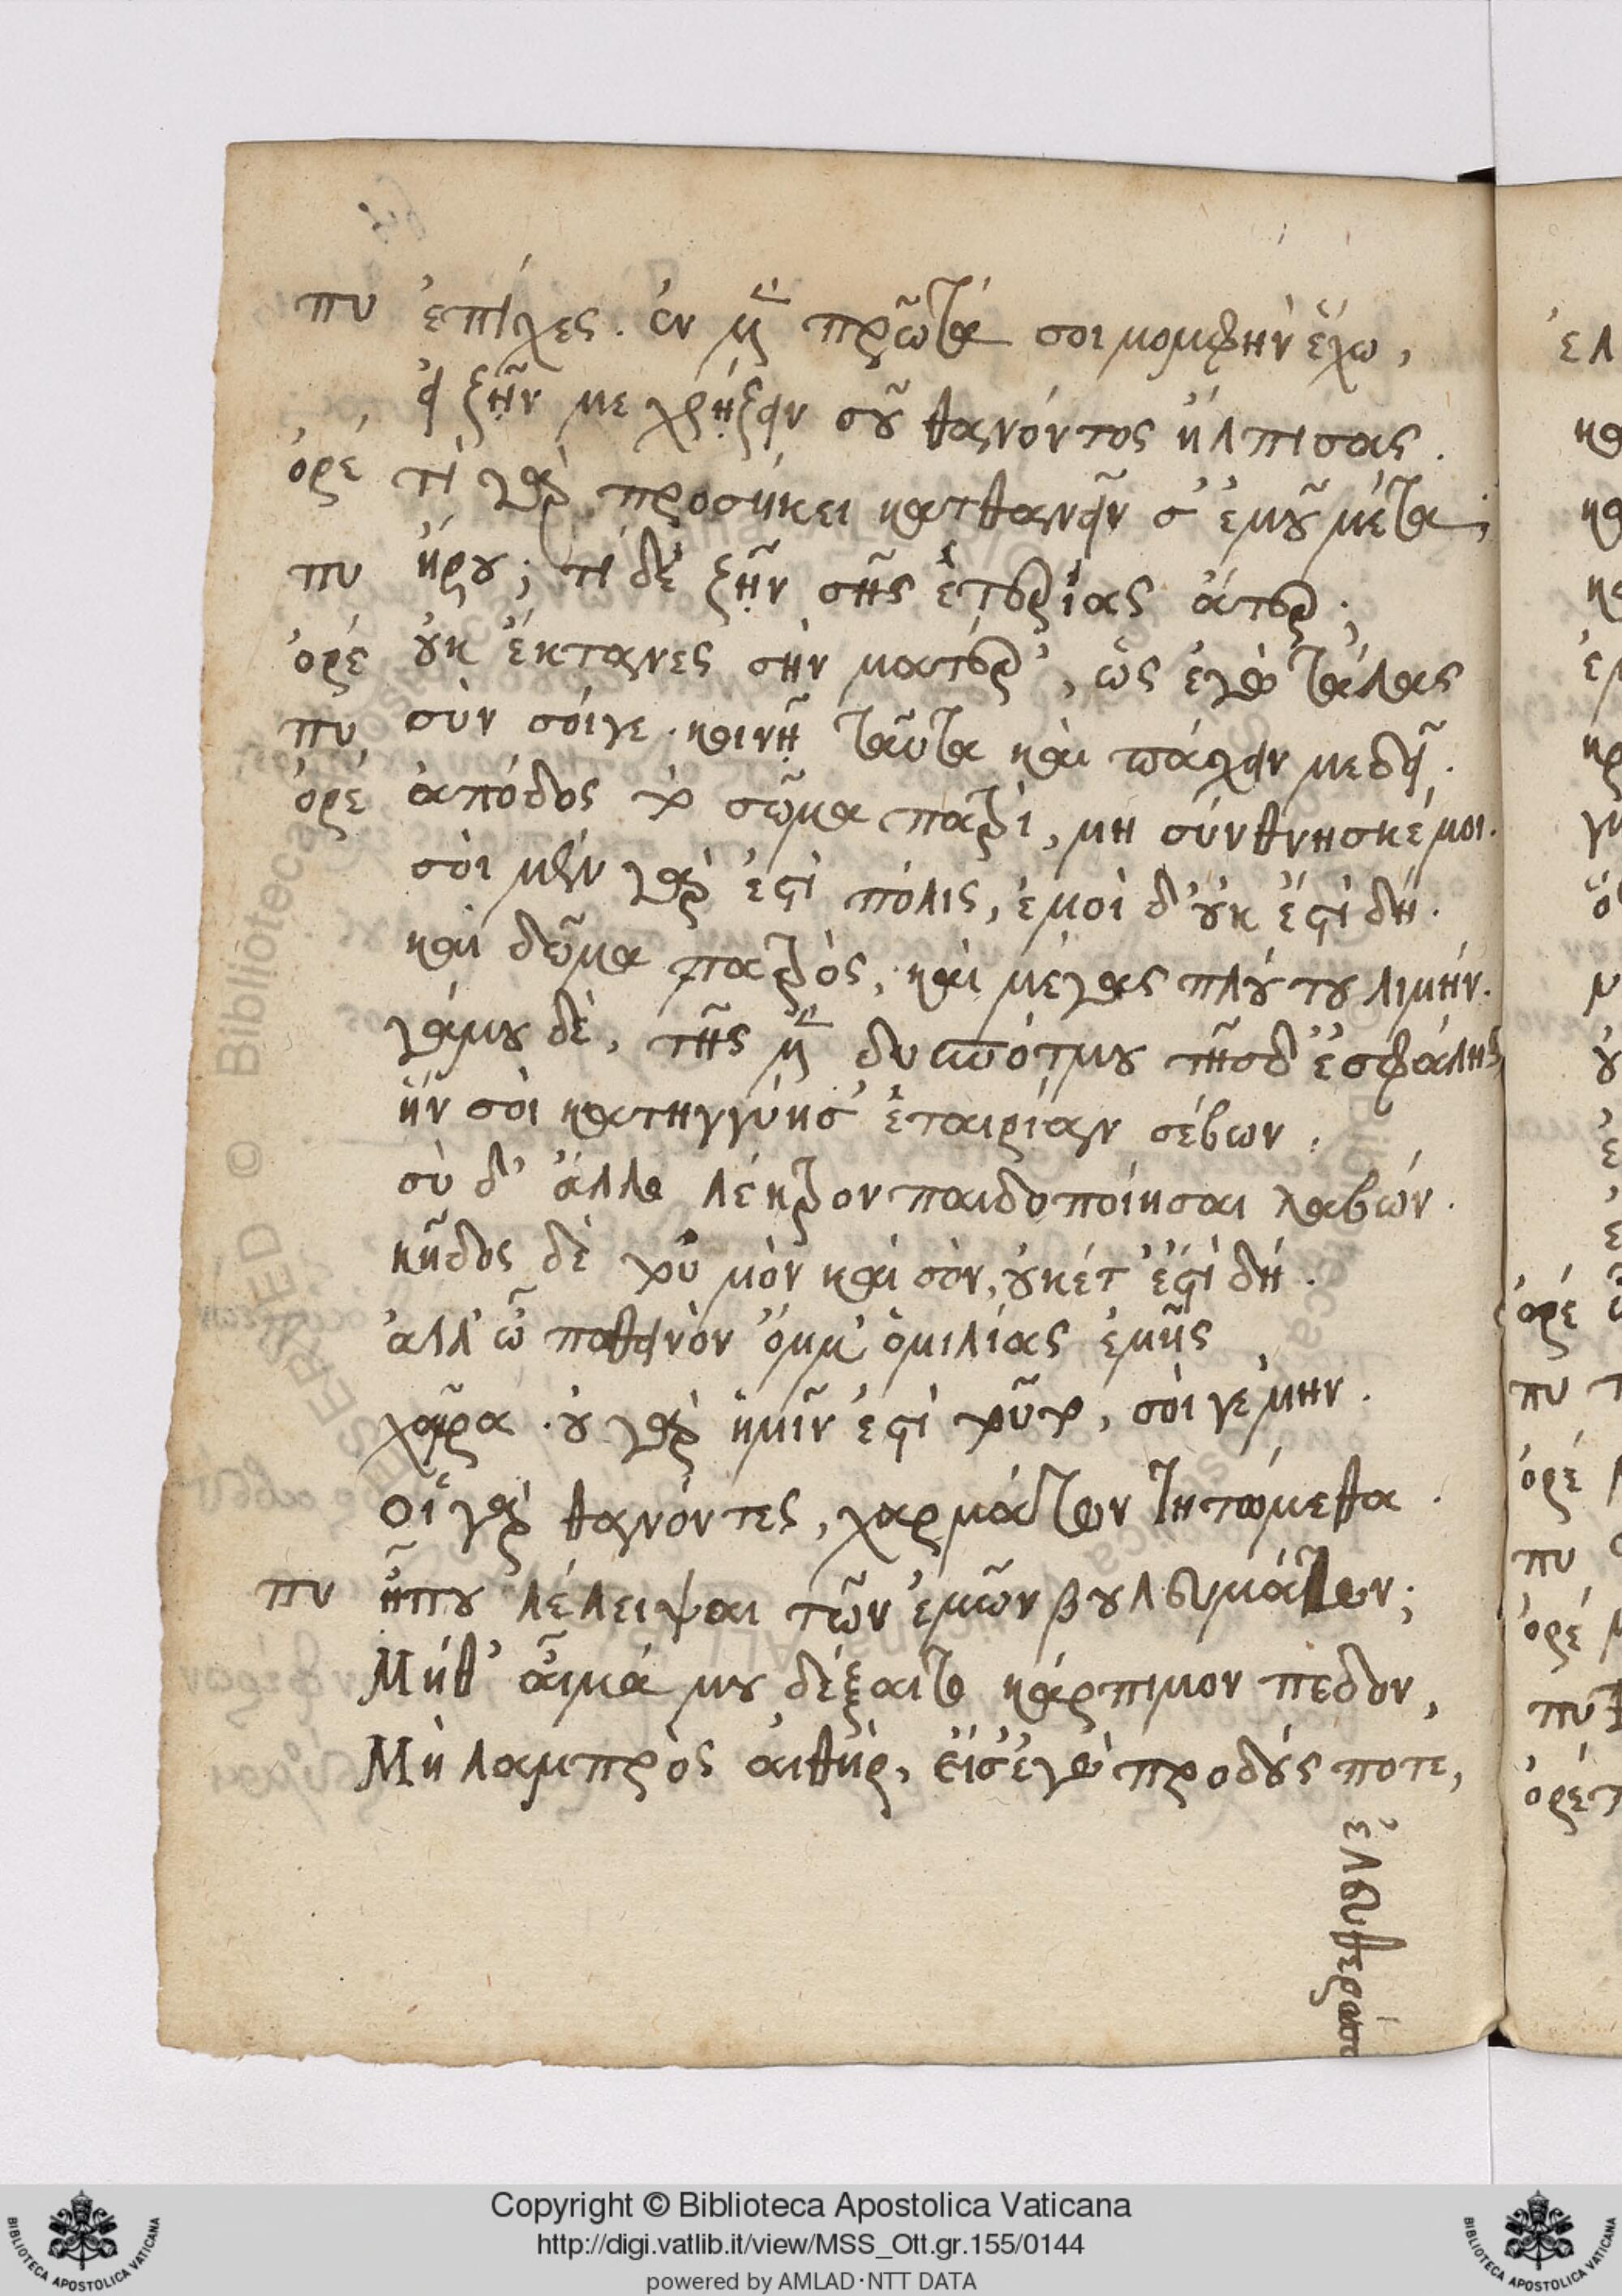 πυ ἐπίσχες. ἓν μὲν πρῶτά σοι μομφὴν ἔχω,
εἰ ζῆν με χρήζειν σοῦ θανόντος ἤλπισας.
ὀρέ τί γὰρ προσήκει κατθανεῖν σ' ἐμοῦ μέτα;
πυ ἤρου; τί δὲ ζῆν σῆς ἑτερίας ἄτερ;
ὀρέ οὐκ ἔκτανες σὴν ματέρ', ὡς ἐγὼ τάλας
πυ σὺν σοί γε. κοινῇ ταῦτα καὶ πάσχειν με δεῖ.
ὀρέ ἀπόδος τὸ σῶμα πατρί, μὴ σύνθνησκέ μοι.
σοὶ μὲν γὰρ ἐστὶ πόλις, ἐμοὶ δ' οὐκ ἔστι δή.
καὶ δῶμα πατρὸς, καὶ μέγας πλούτου λιμήν.
γάμου δὲ, τῆς μὲν δυσπότμου τῆσδ' ἐσφάλης
ἥν σοι κατηγγύησ' ἑταιρίαν σέβων.
σὺ δ' ἄλλο λέκτρον παιδοποίησαι λαβών.
κῆδος δὲ τοὐμὸν καὶ σὸν, οὐκέτ' ἔστι δή.
ἀλλ' ὦ ποθεινὸν ὄμμ' ὁμιλίας ἐμῆς
χαῖρε. οὐ γὰρ ἡμῖν ἐστὶ τοῦτο, σοί γε μήν.
Οἱ γὰρ θανόντες, χαρμάτων τητώμεθα.
πυ ἦ που λέλειψαι τῶν ἐμῶν βουλευμάτων;
Μήθ' αἷμά μου δέξαιτο κάρπιμον πέδον,
Μὴ λαμπρὸς αἰθήρ, εἴ σ' ἐγὼ προδούς ποτε,
ἐλευθερώσ
Copyright © Biblioteca Apostolica Vaticana
http://digi.vatlib.it/view/MSS_Ott.gr.155/0144
powered by AMLAD·NTT DATA